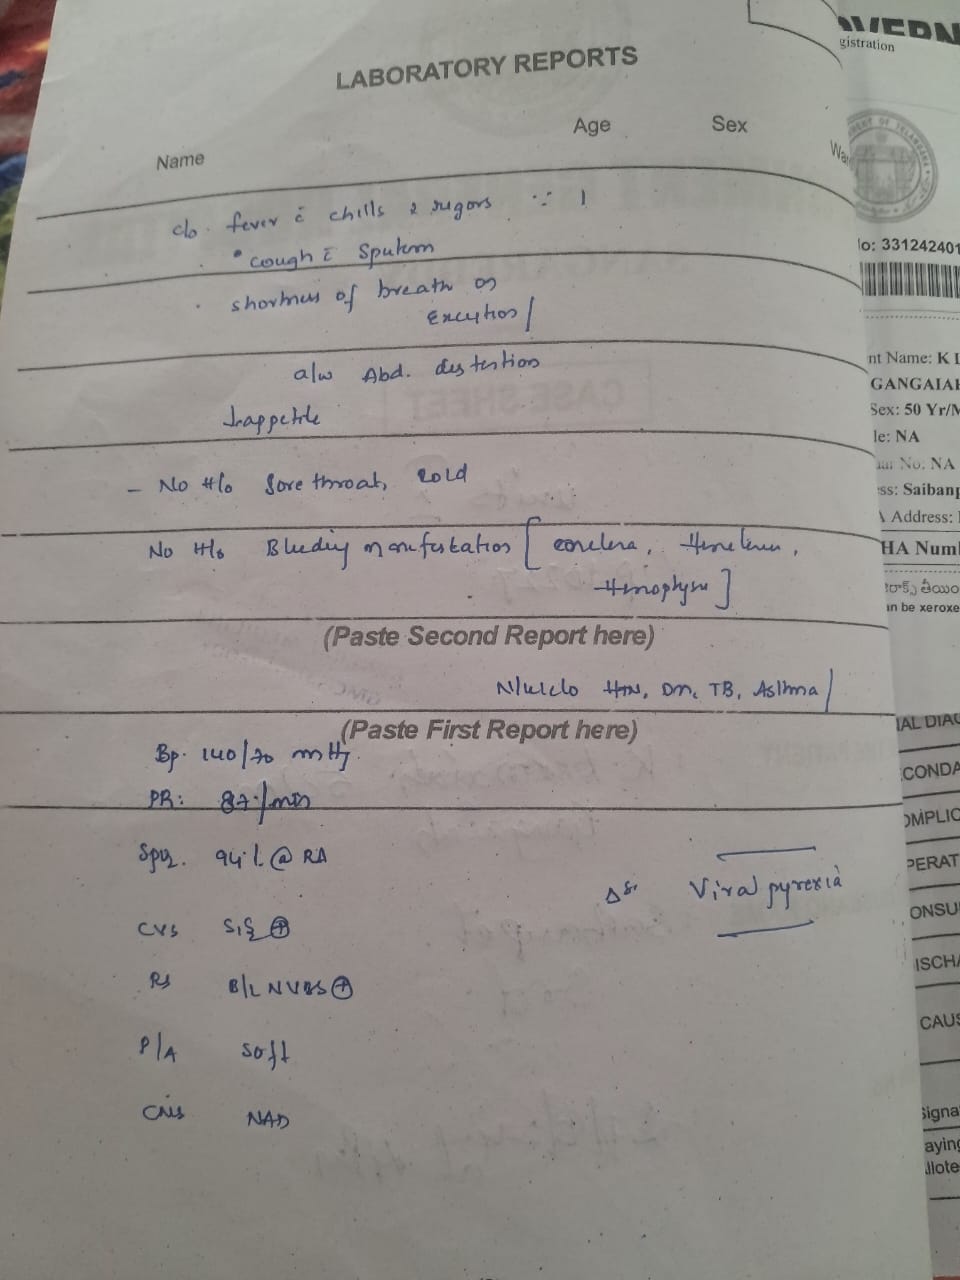 LABORATORY REPORTS
Name Age Sex
c/o. fever c̄ chills & rigors
• cough c̄ Sputum
shortness of breath on
Exertion
a/w Abd. distention
- No H/o Sore throat, cold
No H/o Bleeding manifestation [
]
(Paste Second Report here)
HTN, DM, TB, Asthma
(Paste First Report here)
Bp. 140/70 mmHg.
PR: 87/min
Spo2. 94% @ RA
Δs. Viral pyrexia
CVS S1S2 ⊕
RS B/L NVBS ⊕
P/A Soft
CNS NAD
AVERN
gistration
lo: 331242401
nt Name: K
GANGAIAH
Sex: 50 Yr/M
le: NA
No. NA
ess: Saibanp
Address:
HA Num
an be xeroxe
IAL DIAG
CONDA
OMPLIC
PERAT
ONSU
ISCHA
CAUS
Signa
aying
llote